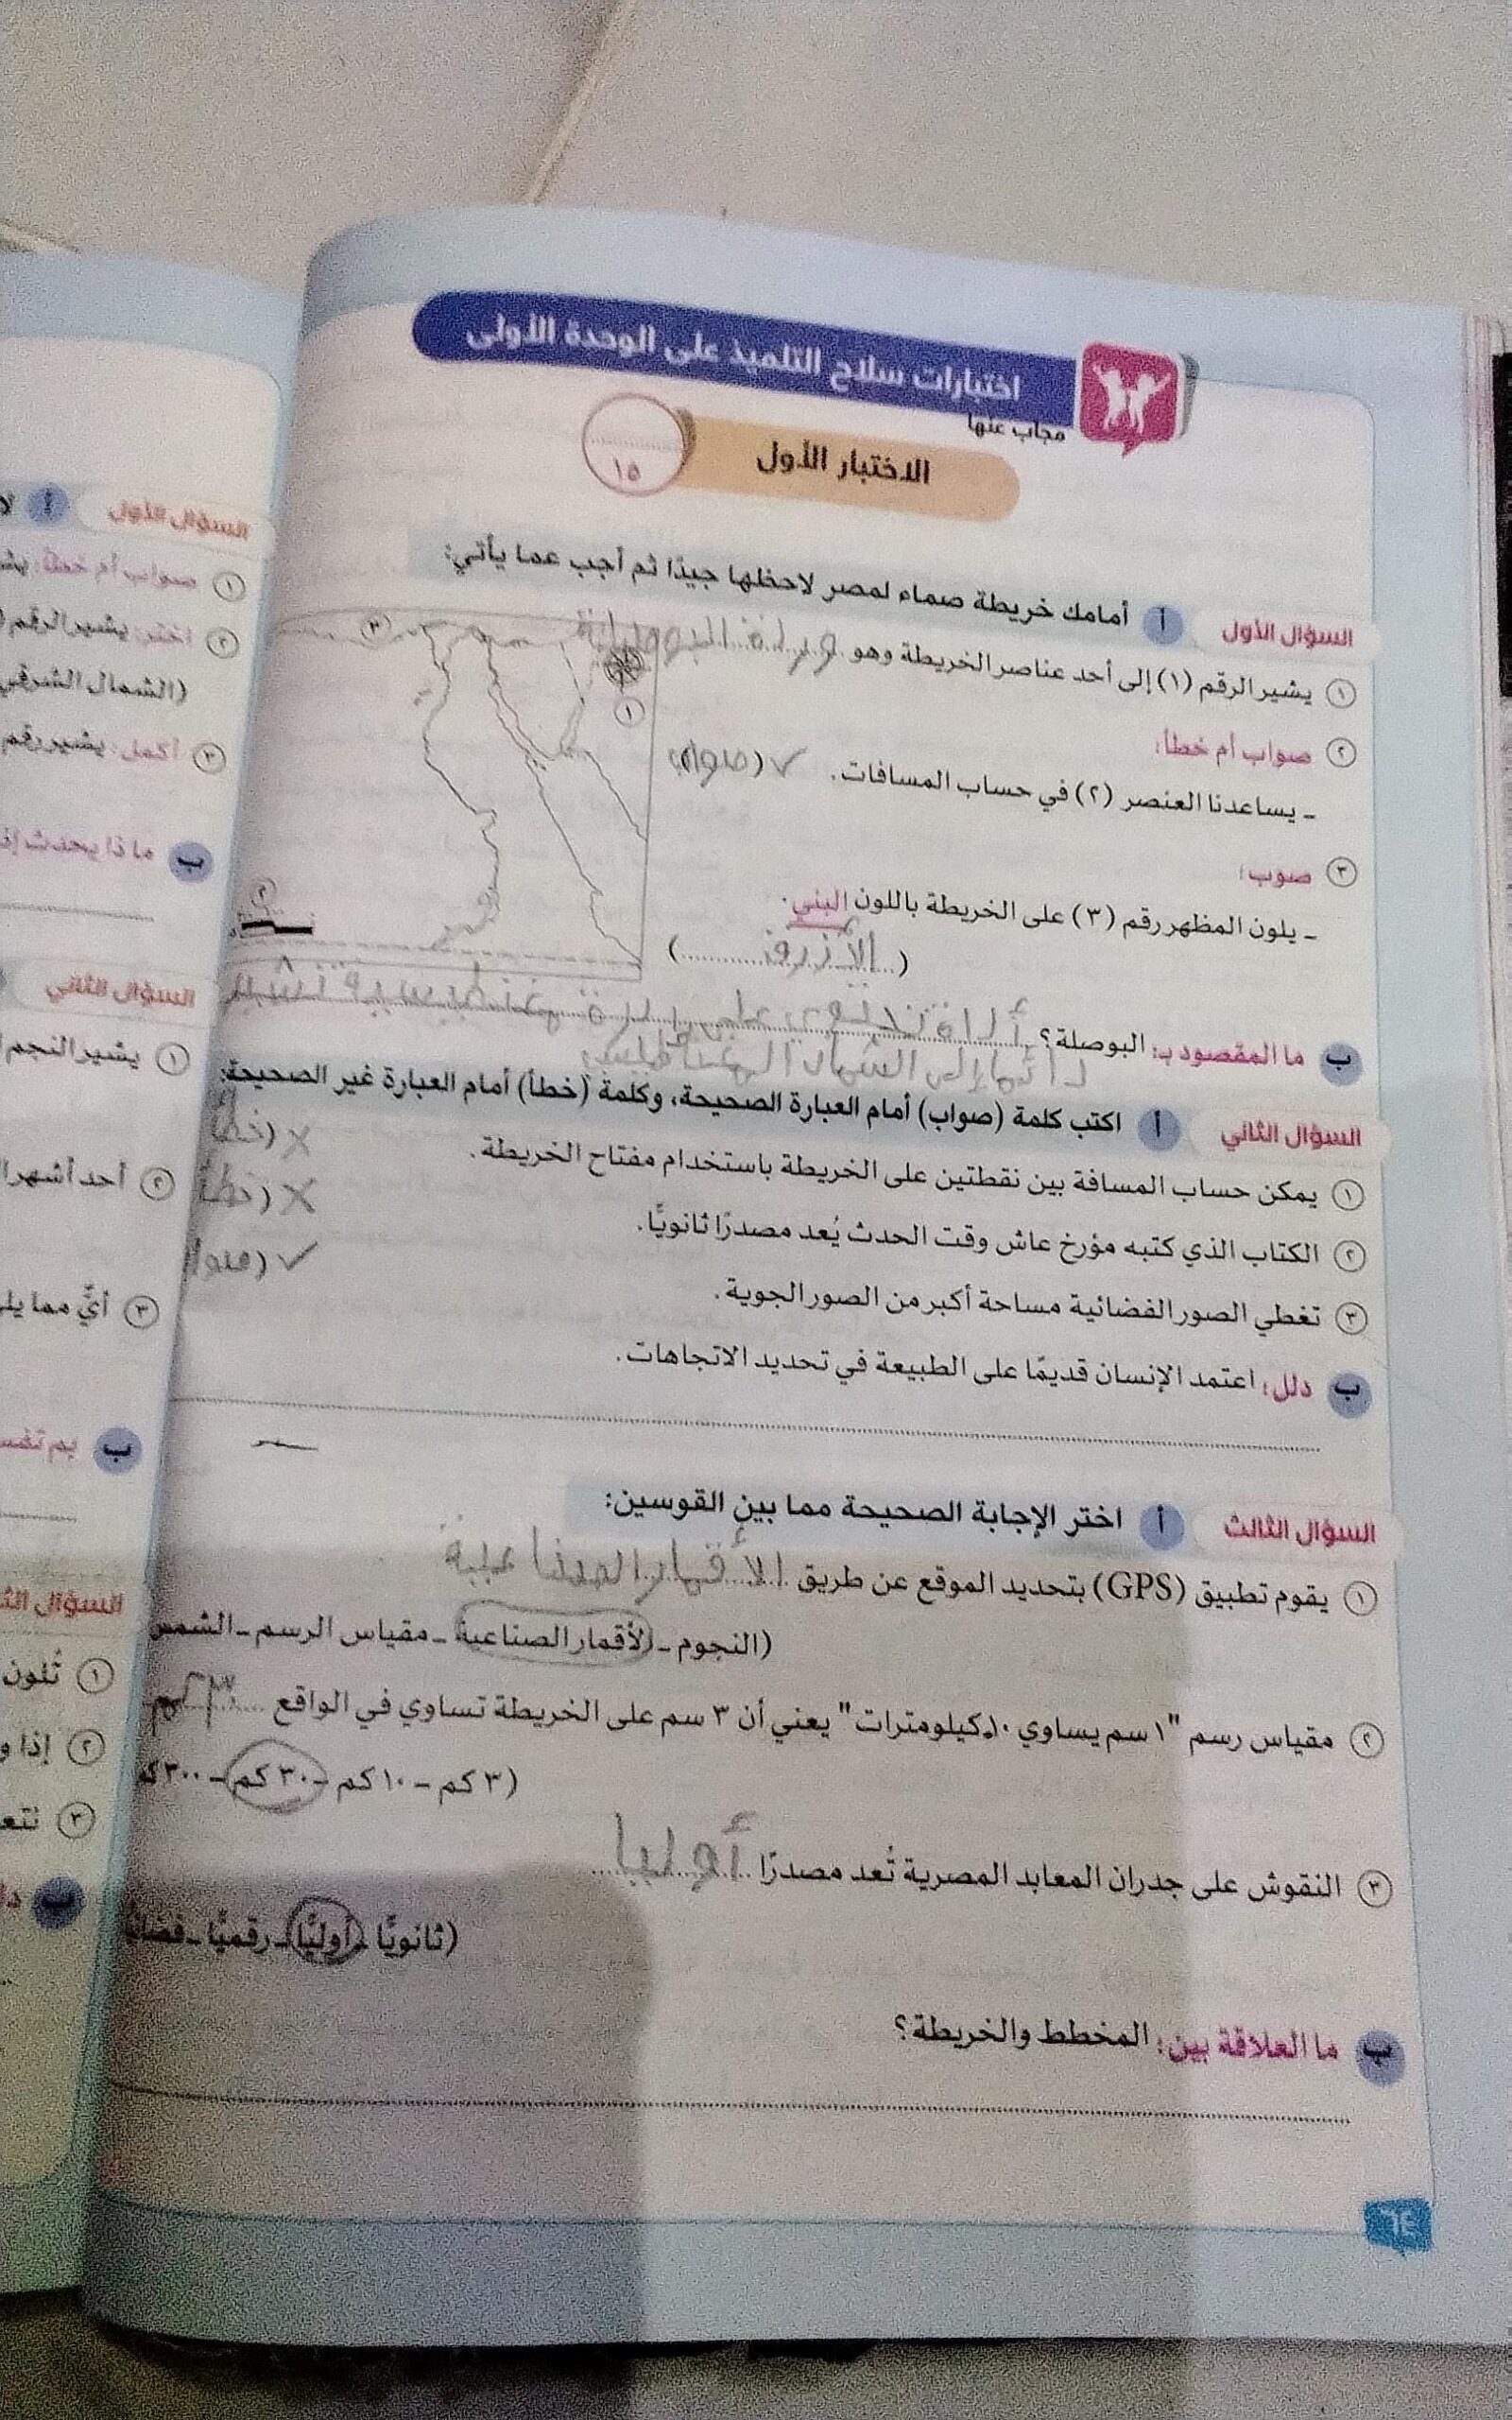 اختبارات سلاح التلميذ على الوحدة الأولى
مجاب عنها
الاختبار الأول
١٥
السؤال الأول أ أمامك خريطة صماء لمصر لاحظها جيدًا ثم أجب عما يأتي:
١ يشير الرقم (١) إلى أحد عناصر الخريطة وهو وردة البوصلة
٢ صواب أم خطأ:
- يساعدنا العنصر (٢) في حساب المسافات. ✓ (صواب
٣ صوب:
- يلون المظهر رقم (٣) على الخريطة باللون البني.
(الأزرق)
٣
١
٢
ب ما المقصود بـ: البوصلة؟ أداة تحتوي على إبرة مغناطيسية تشير
دائما إلى الشمال المغناطيسي
السؤال الثاني أ اكتب كلمة (صواب) أمام العبارة الصحيحة، وكلمة (خطأ) أمام العبارة غير الصحيحة:
١ يمكن حساب المسافة بين نقطتين على الخريطة باستخدام مفتاح الخريطة. × (خطأ
٢ الكتاب الذي كتبه مؤرخ عاش وقت الحدث يُعد مصدرًا ثانويًّا. × (خطأ
٣ تغطي الصور الفضائية مساحة أكبر من الصور الجوية. ✓ (صوا
ب دلل: اعتمد الإنسان قديمًا على الطبيعة في تحديد الاتجاهات.
السؤال الثالث أ اختر الإجابة الصحيحة مما بين القوسين:
١ يقوم تطبيق (GPS) بتحديد الموقع عن طريق الأقمار الصناعية
(النجوم - الأقمار الصناعية - مقياس الرسم - الشمس
٢ مقياس رسم "١ سم يساوي ١٠ كيلومترات" يعني أن ٣ سم على الخريطة تساوي في الواقع ٣٠ كم
(٣ كم - ١٠ كم - ٣٠ كم - ٣٠٠ ك
٣ النقوش على جدران المعابد المصرية تُعد مصدرًا أوليا
(ثانويًّا - أوليًّا - رقميًّا - فضائ
ب ما العلاقة بين: المخطط والخريطة؟
٦٤
السؤال الأول أ لا
١ صواب أم خطأ: يش
٢ اختر: يشير الرقم (
(الشمال الشرقي
٣ أكمل: يشير رقم
ب ماذا يحدث إذ
السؤال الثاني
١ يشير النجم ا
٢ أحد أشهر ا
٣ أيٌّ مما يلي
ب بم تفسر
السؤال الث
١ تُلون
٢ إذا و
٣ نتع
ب د